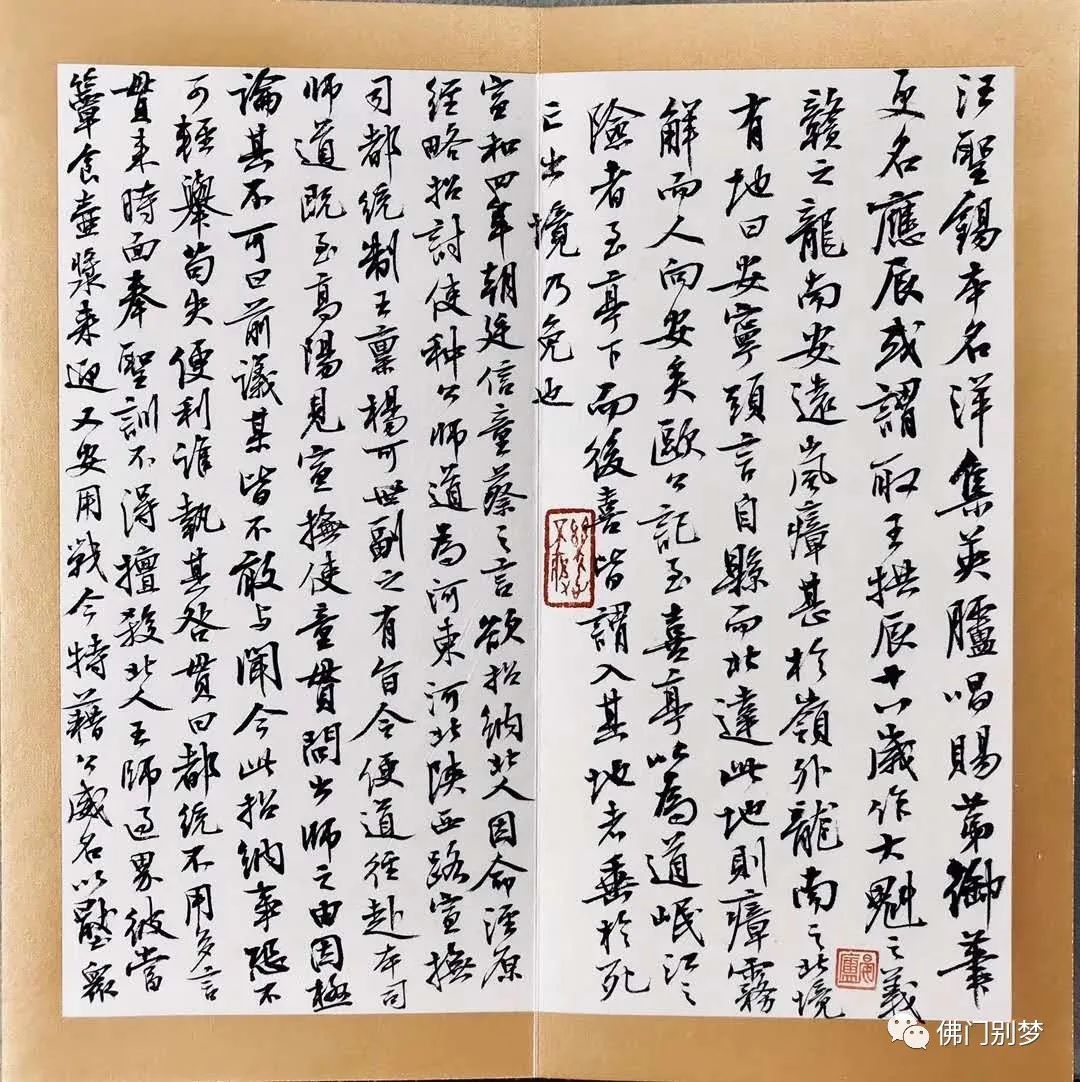 汪聖錫本名洋集英臚唱賜第御筆
更名應辰或謂取王拱辰十八歲作大魁之義
贛之龍南安遠嵐瘴甚於嶺外龍南之北境
有地曰安寧頭言自縣而北達此地則瘴霧
解而人向安矣歐公記至喜亭以為道岷江之
險者至亭下而後喜皆謂入其地者垂於死
亡出境乃免也
宣和四年朝廷信童蔡之言欲招納北人因命涇原
經略招討使种公師道為河東河北陝西路宣撫
司都統制王稟楊可世副之有旨令便道徑赴本司
師道既至高陽見宣撫使童貫問出師之由因極
論其不可曰前議某皆不敢与聞今此招納事恐不
可輕舉苟失便利誰執其咎貫曰都統不用多言
貫来時面奉聖訓不得擅殺北人王師過界彼當
簞食壺漿来迎又安用戰今特藉公威名以壓衆
佛门别梦